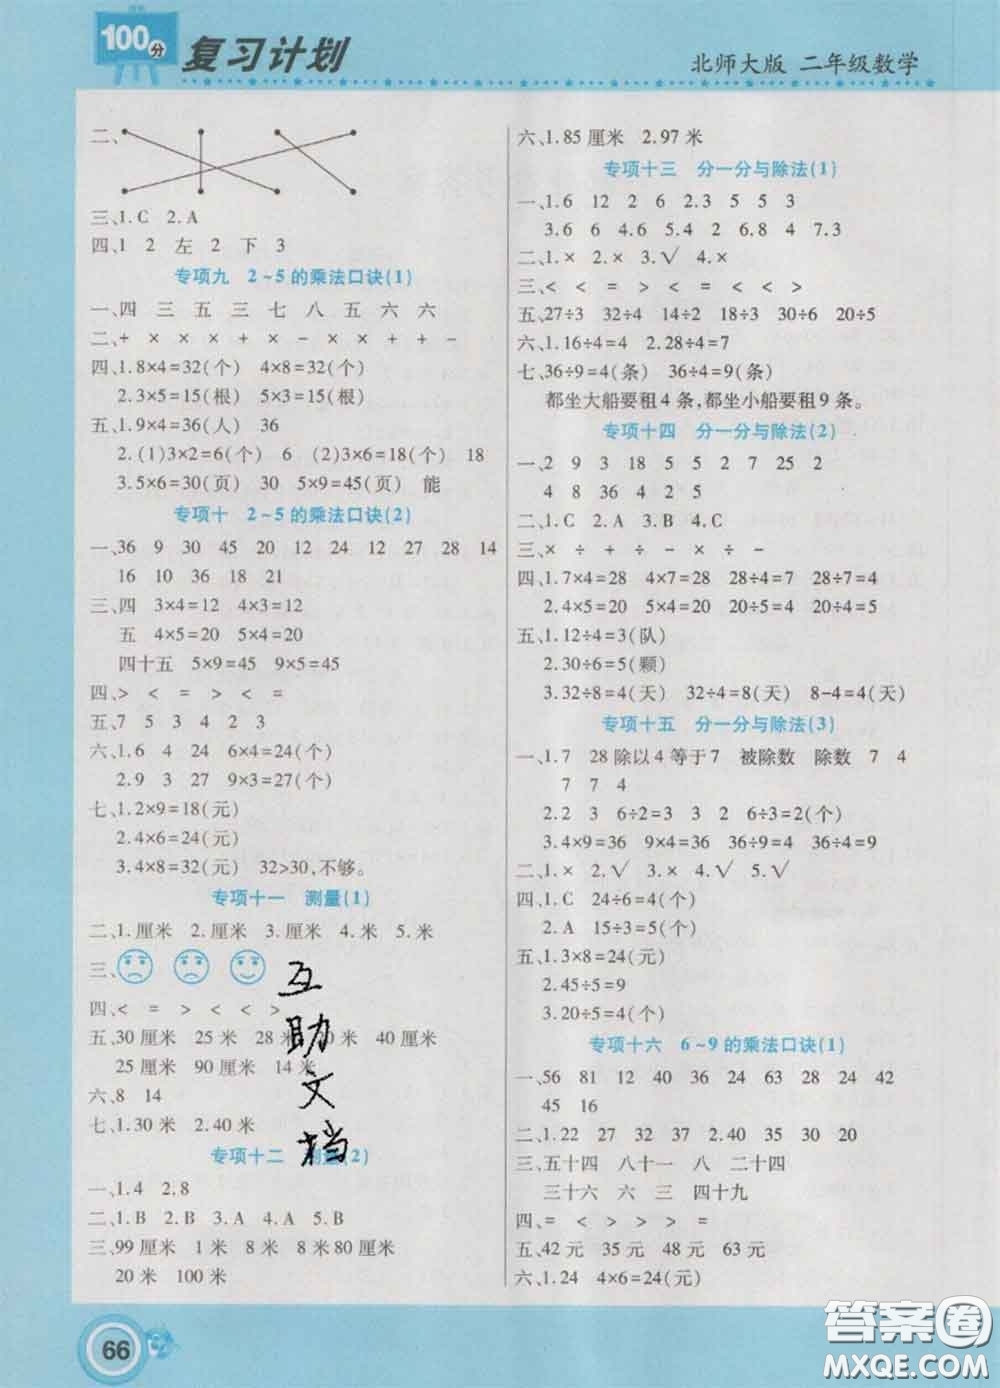 100分 复习计划
北师大版 二年级数学
二、
三、1.C 2.A
四、1 2 左 2 下 3
专项九 2~5的乘法口诀(1)
一、四 三 五 三 七 八 五 六 六
二、+ × × × + × - × + + -
四、1.8×4=32(个) 4×8=32(个)
2.3×5=15(根) 5×3=15(根)
五、1.9×4=36(人) 36
2.(1)3×2=6(个) 6 (2)3×6=18(个) 18
3.5×6=30(页) 30 5×9=45(页) 能
专项十 2~5的乘法口诀(2)
一、36 9 30 45 20 12 24 12 27 28 14
16 10 36 18 21
三、四 3×4=12 4×3=12
五 4×5=20 5×4=20
四十五 5×9=45 9×5=45
四、> < = > < =
五、7 5 3 4 2 3
六、1.6 4 24 6×4=24(个)
2.9 3 27 9×3=27(个)
七、1.2×9=18(元)
2.4×6=24(元)
3.4×8=32(元) 32>30,不够。
专项十一 测量(1)
二、1.厘米 2.厘米 3.厘米 4.米 5.米
三、
四、< = > < < >
五、30厘米 25米 28米 20米 40厘米
25厘米 90厘米 14米
六、8 14
七、1.30米 2.40米
专项十二 测量(2)
一、1.4 2.8
二、1.B 2.B 3.A 4.A 5.B
三、99厘米 1米 8米 8米80厘米
20米 100米
互
助
文
档
六、1.85厘米 2.97米
专项十三 分一分与除法(1)
一、1.6 12 2 6 2.3 5 5 3
3.6 6 4.6 5.4 2 6.8 4 7.3
二、1.× 2.× 3.√ 4.×
三、< < > > = < < >
五、27÷3 32÷4 14÷2 18÷3 30÷6 20÷5
六、1.16÷4=4 2.28÷4=7
七、36÷9=4(条) 36÷4=9(条)
都坐大船要租4条,都坐小船要租9条。
专项十四 分一分与除法(2)
一、2 9 3 18 5 5 2 7 25 2
4 8 36 4 2 5
二、1.C 2.A 3.B 4.C
三、× ÷ + ÷ - × ÷ -
四、1.7×4=28 4×7=28 28÷4=7 28÷7=4
2.4×5=20 5×4=20 20÷5=4 20÷4=5
五、1.12÷4=3(队)
2.30÷6=5(颗)
3.32÷8=4(天) 32÷4=8(天) 8-4=4(天)
专项十五 分一分与除法(3)
一、1.7 28除以4等于7 被除数 除数 7 4
7 7 4
2.2 3 6÷2=3 3 2 6÷3=2(个)
3.4×9=36 9×4=36 36÷9=4 36÷4=9
二、1.× 2.√ 3.√ 4.×
四、1.C 24÷6=4(个)
2.A 15÷3=5(个)
五、1.3×8=24(元)
2.45÷5=9(元)
3.20÷5=4(个)
专项十六 6~9的乘法口诀(1)
一、56 81 12 40 36 24 63 28 24 42
45 16
二、1.22 27 32 37 2.10 35 30 20
三、五十四 八十一 八 二十四
三十六 六 三 四十九
四、= < > > > =
五、42元 35元 48元 63元
六、1.24 4×6=24(元)
66
答案圈
MXQE.COM